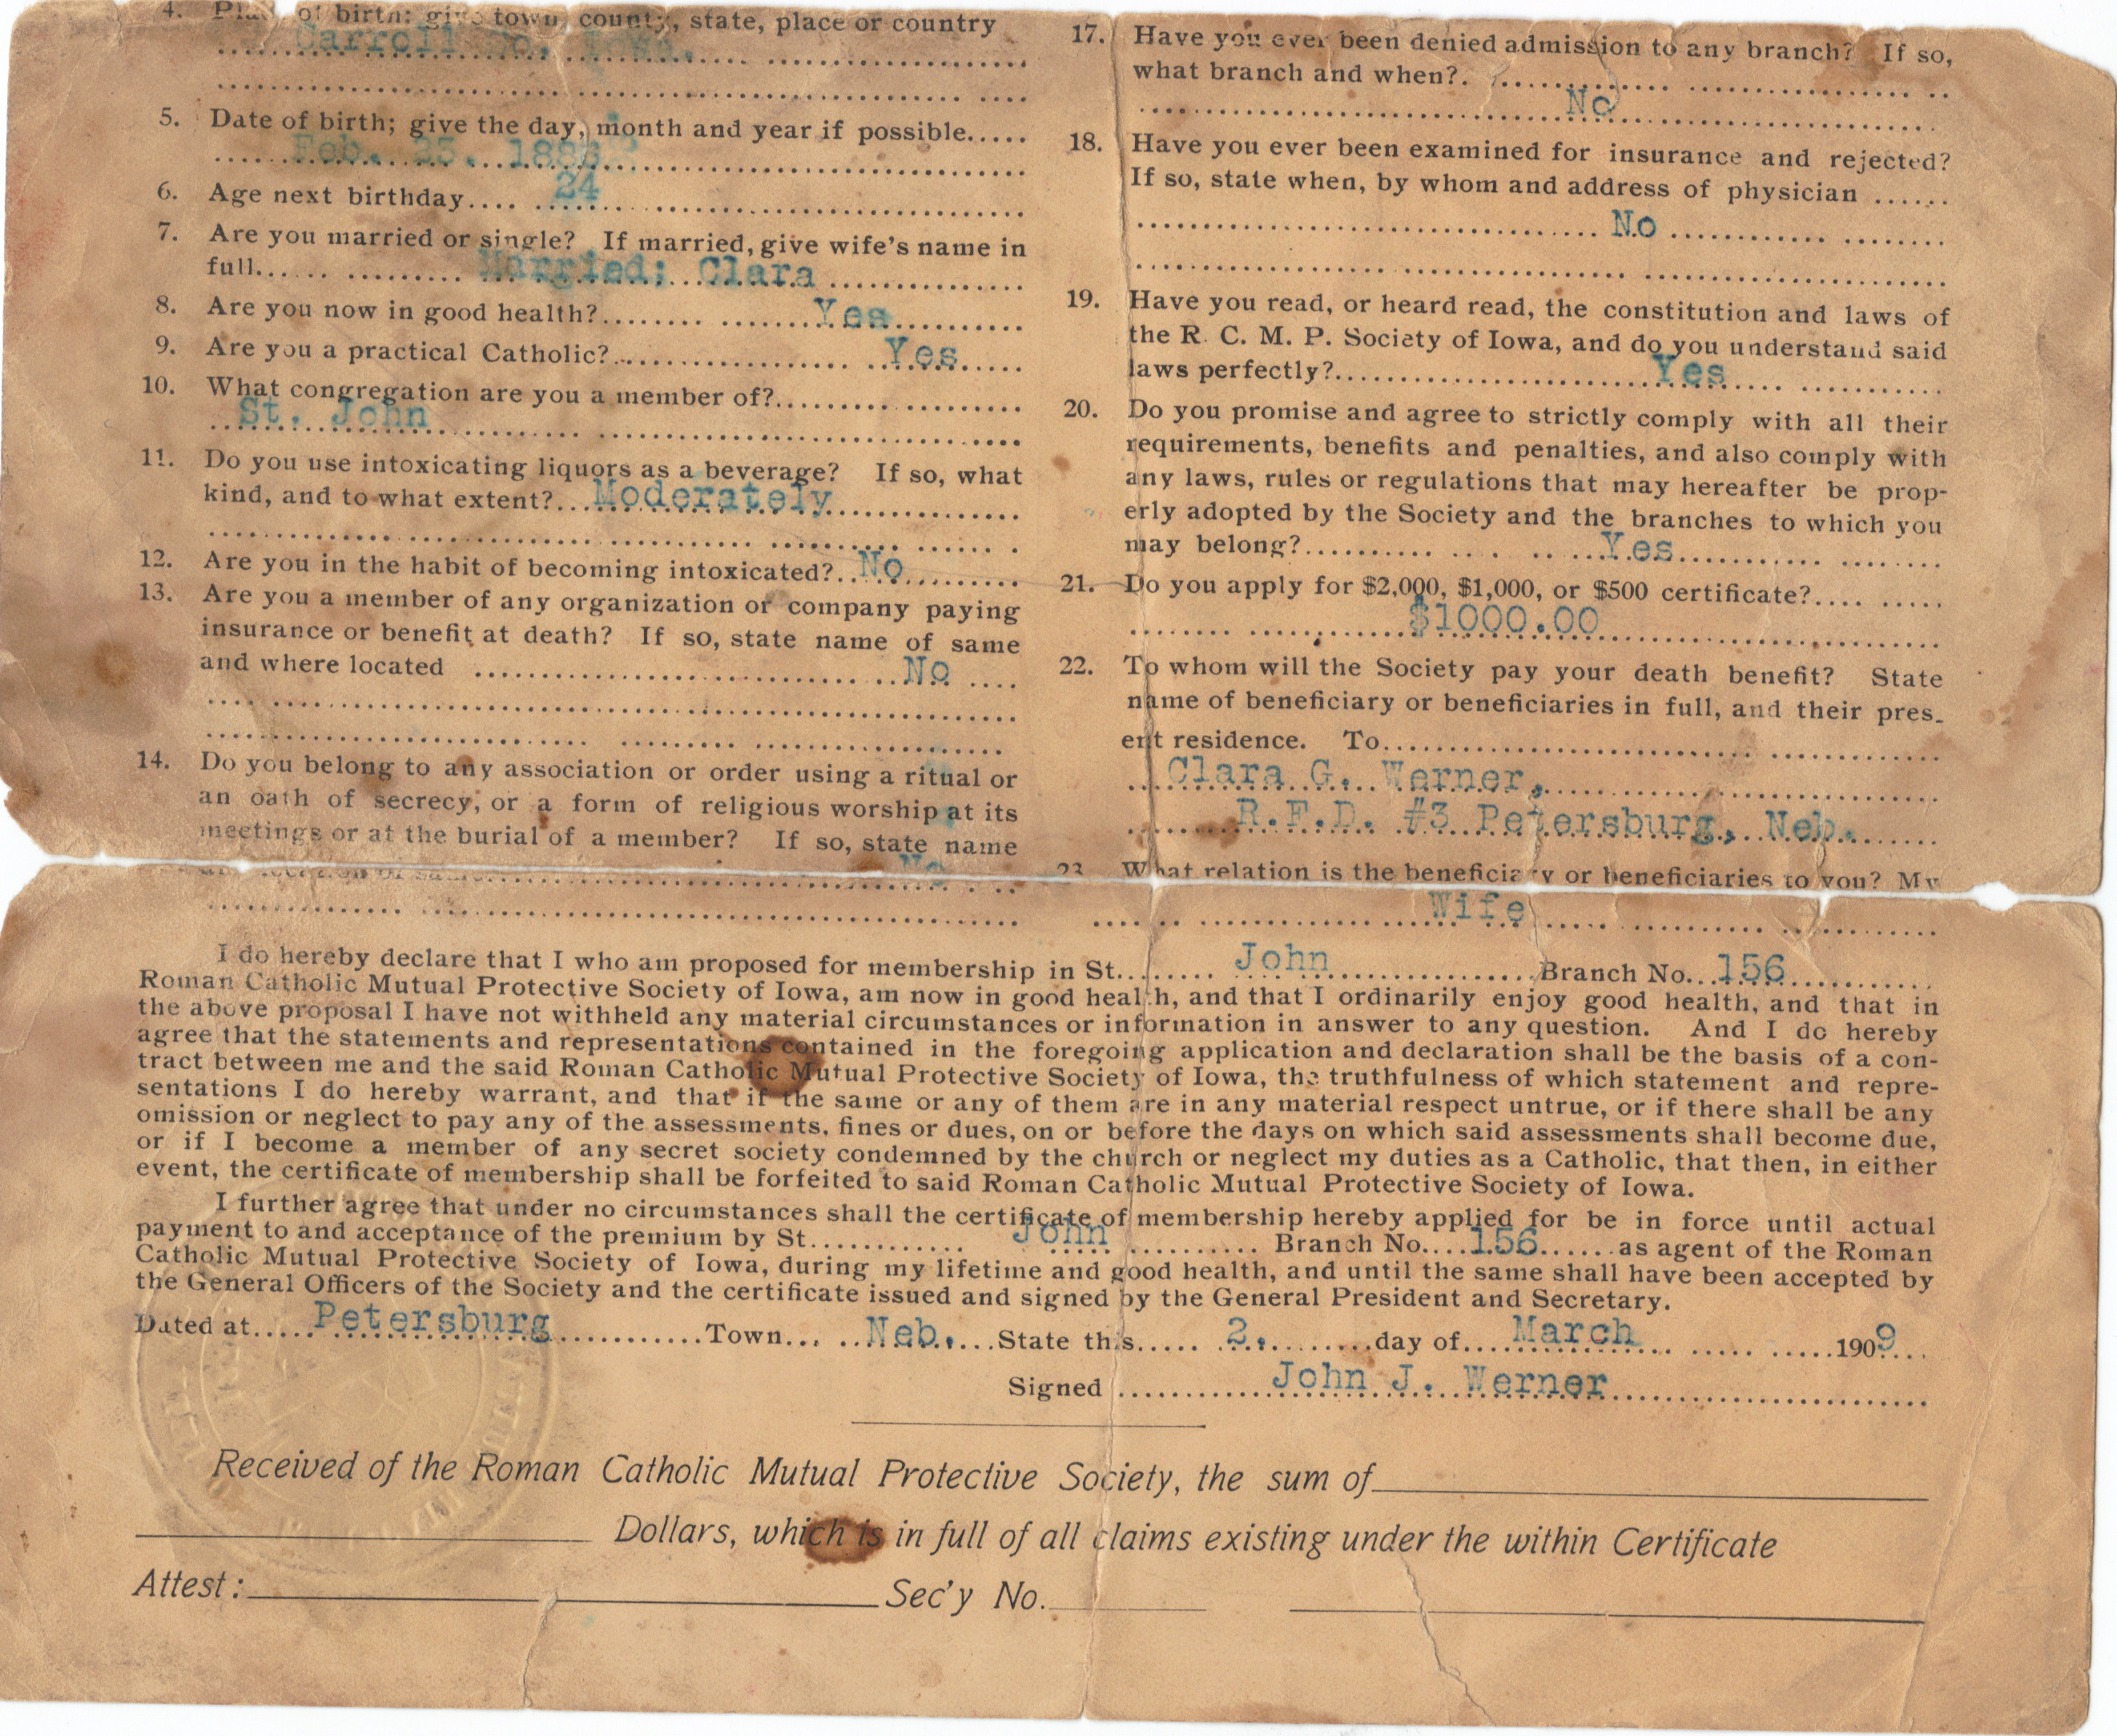 4. Place of birth: give town, county, state, place or country
Carroll Co. Iowa.
5. Date of birth; give the day, month and year if possible.....
Feb. 25. 188
6. Age next birthday.... 24
7. Are you married or single? If married, give wife's name in
full...... Married; Clara
8. Are you now in good health?........ Yes
9. Are you a practical Catholic?.............. Yes
10. What congregation are you a member of?..........
St. John
11. Do you use intoxicating liquors as a beverage? If so, what
kind, and to what extent?...Moderately
12. Are you in the habit of becoming intoxicated?..No
13. Are you a member of any organization or company paying
insurance or benefit at death? If so, state name of same
and where located .......... No
14. Do you belong to any association or order using a ritual or
an oath of secrecy, or a form of religious worship at its
meetings or at the burial of a member? If so, state name
and location of same.......... No
17. Have you ever been denied admission to any branch? If so,
what branch and when?..........
No
18. Have you ever been examined for insurance and rejected?
If so, state when, by whom and address of physician ......
No
19. Have you read, or heard read, the constitution and laws of
the R. C. M. P. Society of Iowa, and do you understand said
laws perfectly?.......... Yes
20. Do you promise and agree to strictly comply with all their
requirements, benefits and penalties, and also comply with
any laws, rules or regulations that may hereafter be prop-
erly adopted by the Society and the branches to which you
may belong?.......... Yes
21. Do you apply for $2,000, $1,000, or $500 certificate?....
$1000.00
22. To whom will the Society pay your death benefit? State
name of beneficiary or beneficiaries in full, and their pres-
ent residence. To..........
Clara G. Werner,
R.F.D. #3 Petersburg, Neb.
23 What relation is the beneficiary or beneficiaries to you? My
Wife
I do hereby declare that I who am proposed for membership in St........ John ..........Branch No...156
Roman Catholic Mutual Protective Society of Iowa, am now in good health, and that I ordinarily enjoy good health, and that in
the above proposal I have not withheld any material circumstances or information in answer to any question. And I do hereby
agree that the statements and representations contained in the foregoing application and declaration shall be the basis of a con-
tract between me and the said Roman Catholic Mutual Protective Society of Iowa, the truthfulness of which statement and repre-
sentations I do hereby warrant, and that if the same or any of them are in any material respect untrue, or if there shall be any
omission or neglect to pay any of the assessments, fines or dues, on or before the days on which said assessments shall become due,
or if I become a member of any secret society condemned by the church or neglect my duties as a Catholic, that then, in either
event, the certificate of membership shall be forfeited to said Roman Catholic Mutual Protective Society of Iowa.
I further agree that under no circumstances shall the certificate of membership hereby applied for be in force until actual
payment to and acceptance of the premium by St............ John .......... Branch No....156......as agent of the Roman
Catholic Mutual Protective Society of Iowa, during my lifetime and good health, and until the same shall have been accepted by
the General Officers of the Society and the certificate issued and signed by the General President and Secretary.
Dated at..... Petersburg ..........Town... ..Neb....State this..... 2. ........day of.... March .....1909...
Signed .......... John J. Werner
Received of the Roman Catholic Mutual Protective Society, the sum of
Dollars, which is in full of all claims existing under the within Certificate
Attest: Sec'y No.